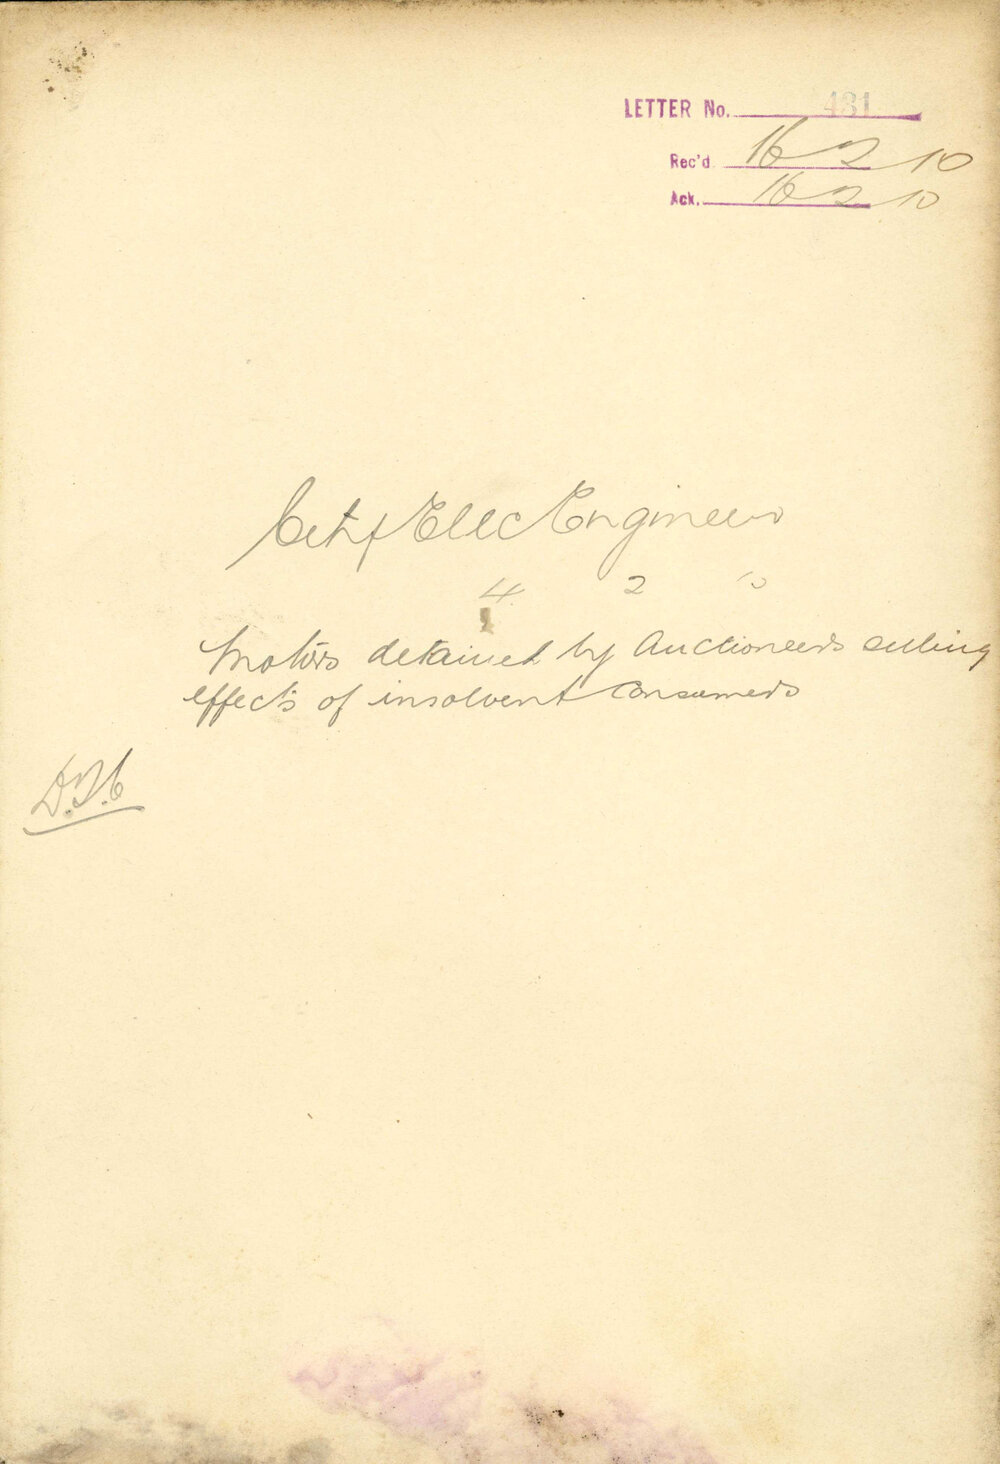 LETTER No. 431
Rec'd 16 2 10
Ack. 16 2 10
City Elec Engineer
4 2 10
Motors detained by Auctioneers selling
effects of insolvent consumers